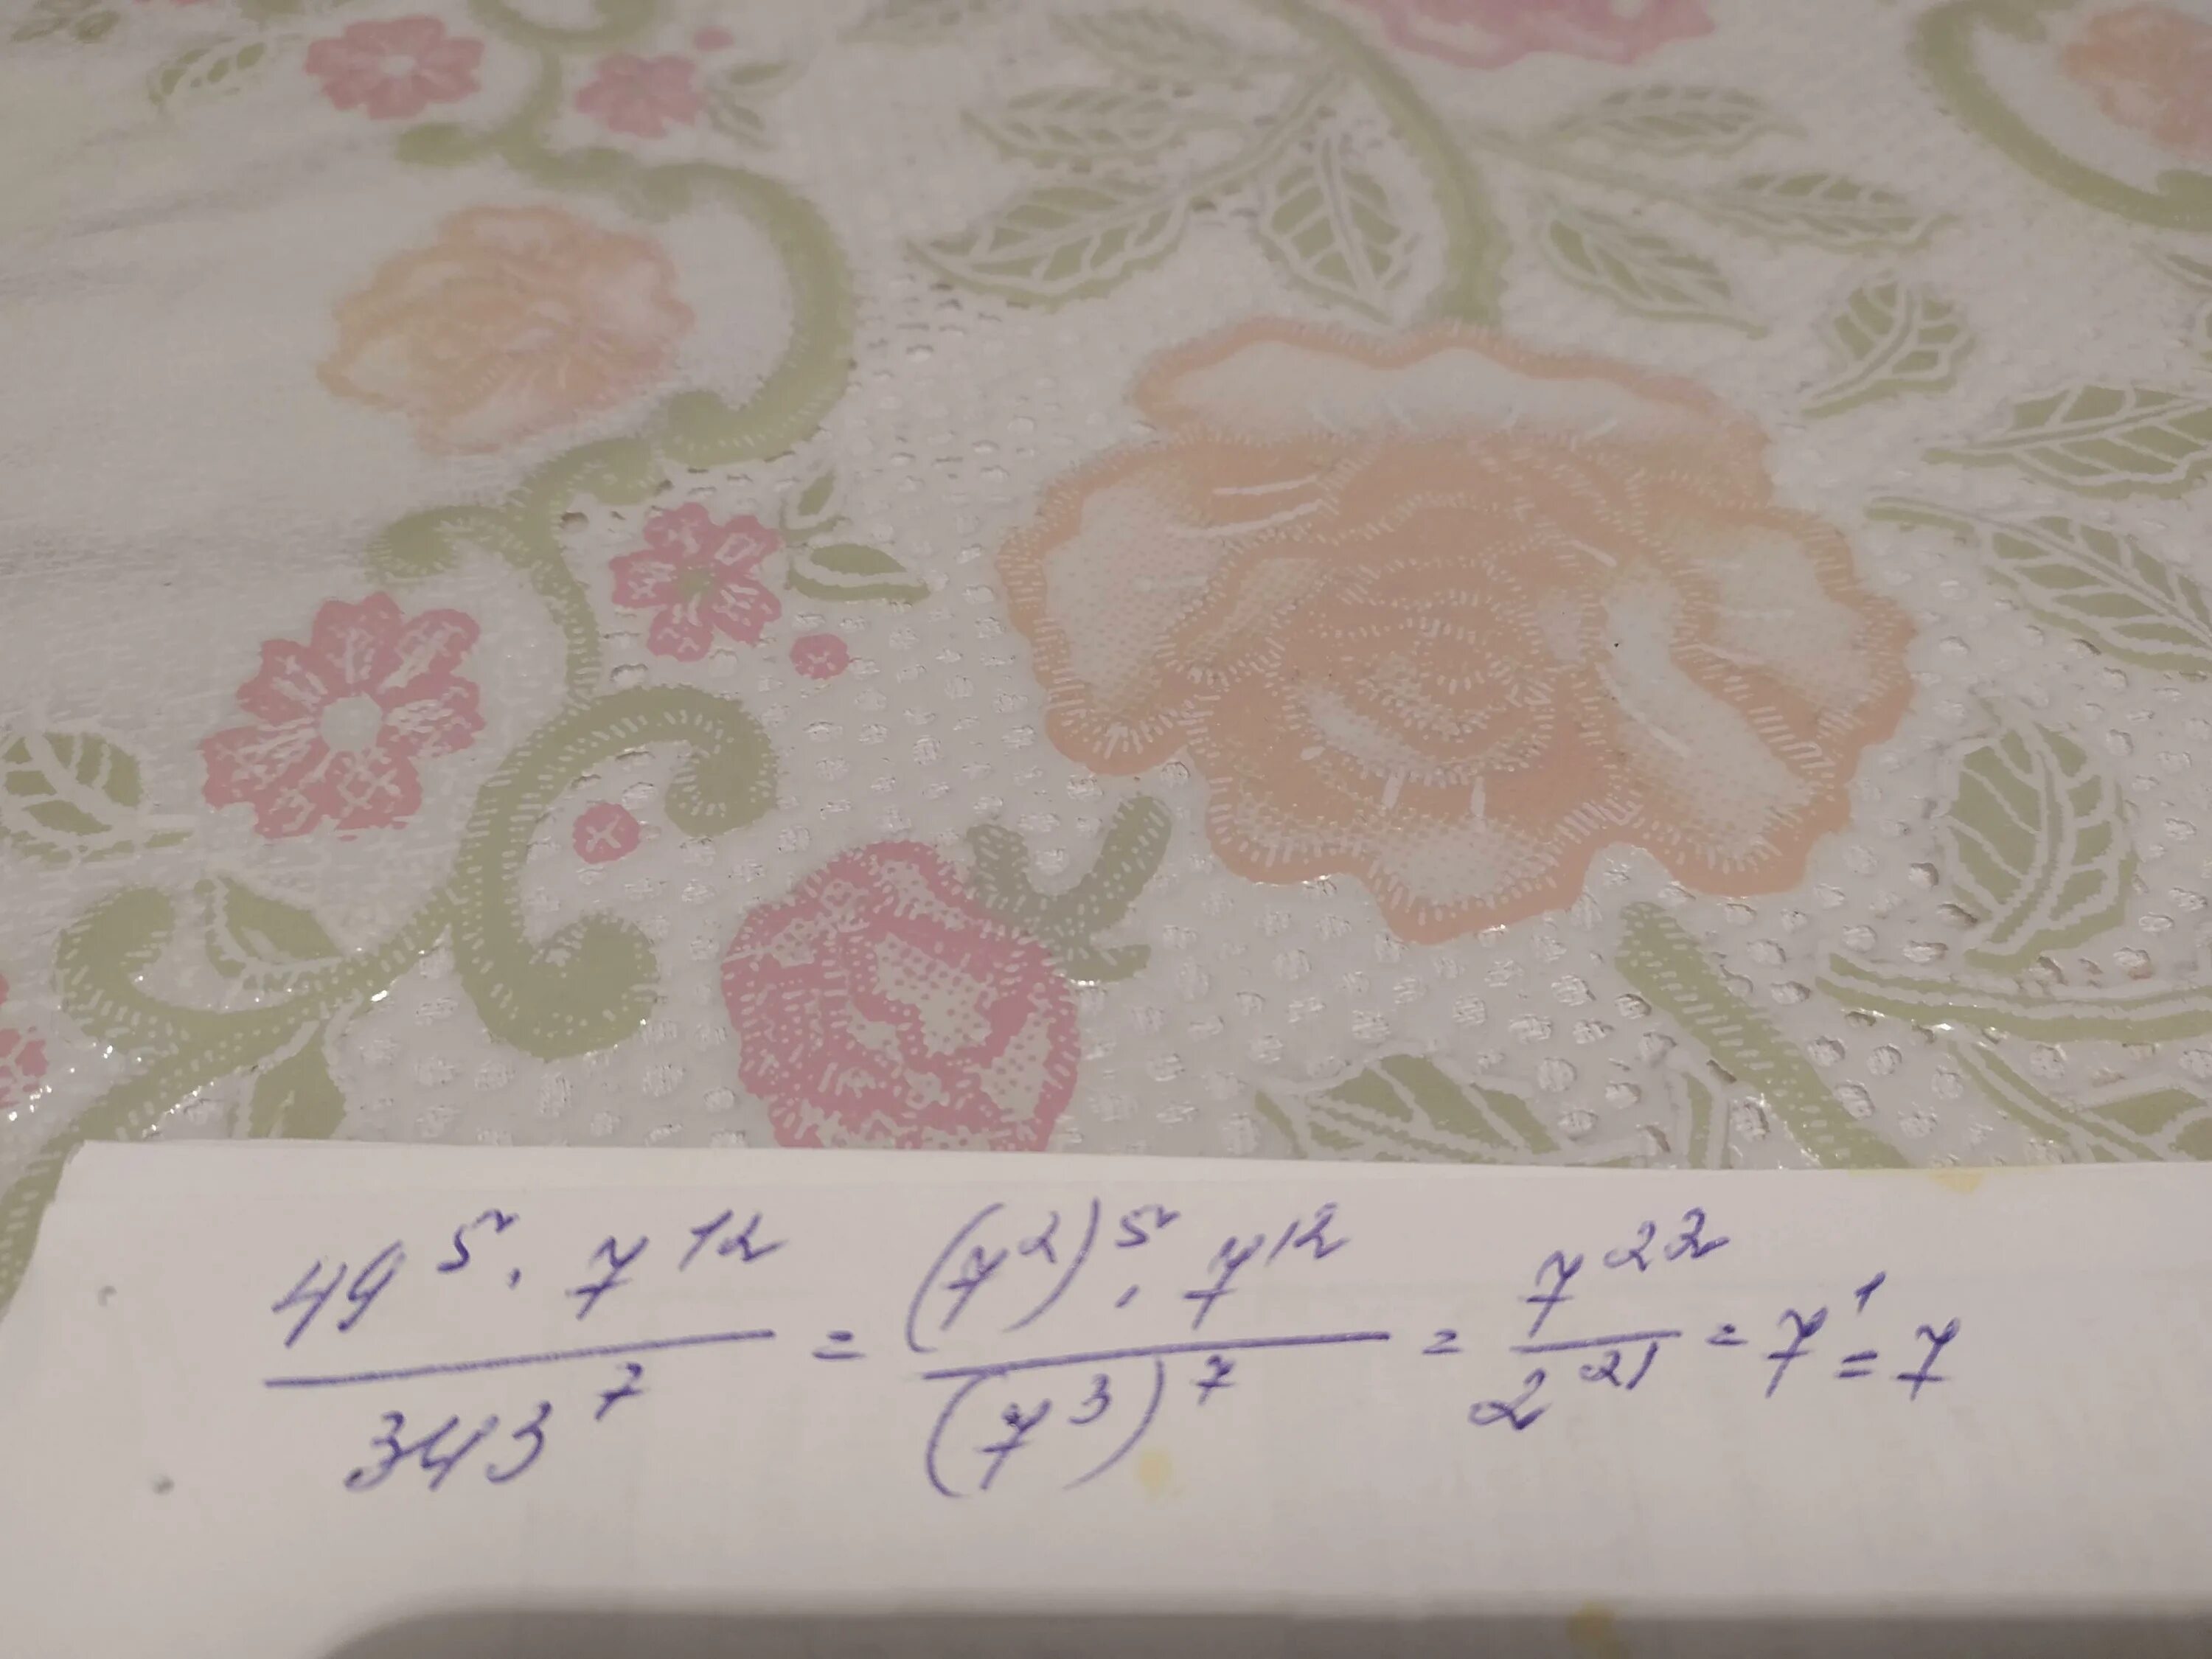 49⁵ · 7¹² / 343⁷ = (7²)⁵ · 7¹² / (7³)⁷ = 7²² / 2²¹ = 7¹ = 7